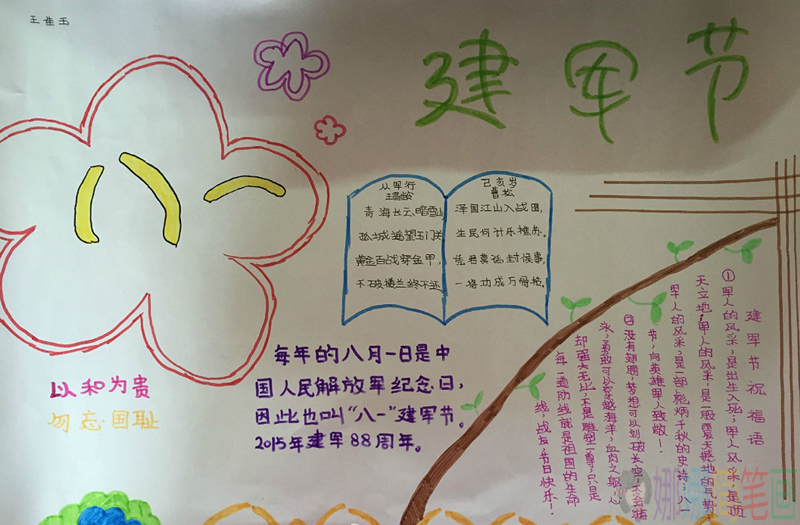 王佳玉
建军节
八一
从军行
己亥岁
曹松
青海长云暗雪山
孤城遥望玉门关
黄金百战穿金甲，
不破楼兰终不还
泽国江山入战图，
生民何计乐樵苏。
凭君莫话封侯事，
一将功成万骨枯。
以和为贵
勿忘·国耻
每年的八月一日是中
国人民解放军纪念日，
因此也叫“八一”建军节。
2015年建军88周年。
建军节祝福语
①军人的风采，是出生入死；军人风采是顶
天立地；军人的风采，是一股
军人的风采，是一部彪炳千秋的史诗，八一
节，向英雄军人致敬！
②没有翅膀，梦想可以划破长空，不会游
泳，勇敢可以穿越海洋，血肉之躯，
却强大无比，不是雕塑一尊，只是
每一道防线就是祖国的生命
线，战友，节日快乐！
笔画